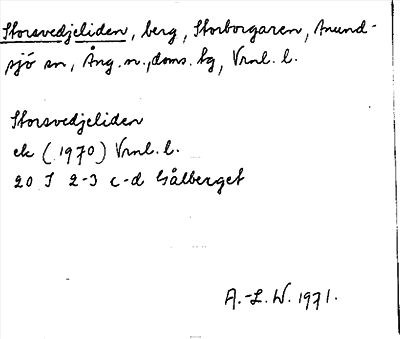 Storsvedjeliden, berg, Storborgaren, Anund-
sjö sn, Ång. n., doms. sg, Vrnl. l.
Storsvedjeliden
ek (1970) Vrnl. l.
20 I 2-3 c-d Gålberget
A.-L. W. 1971.